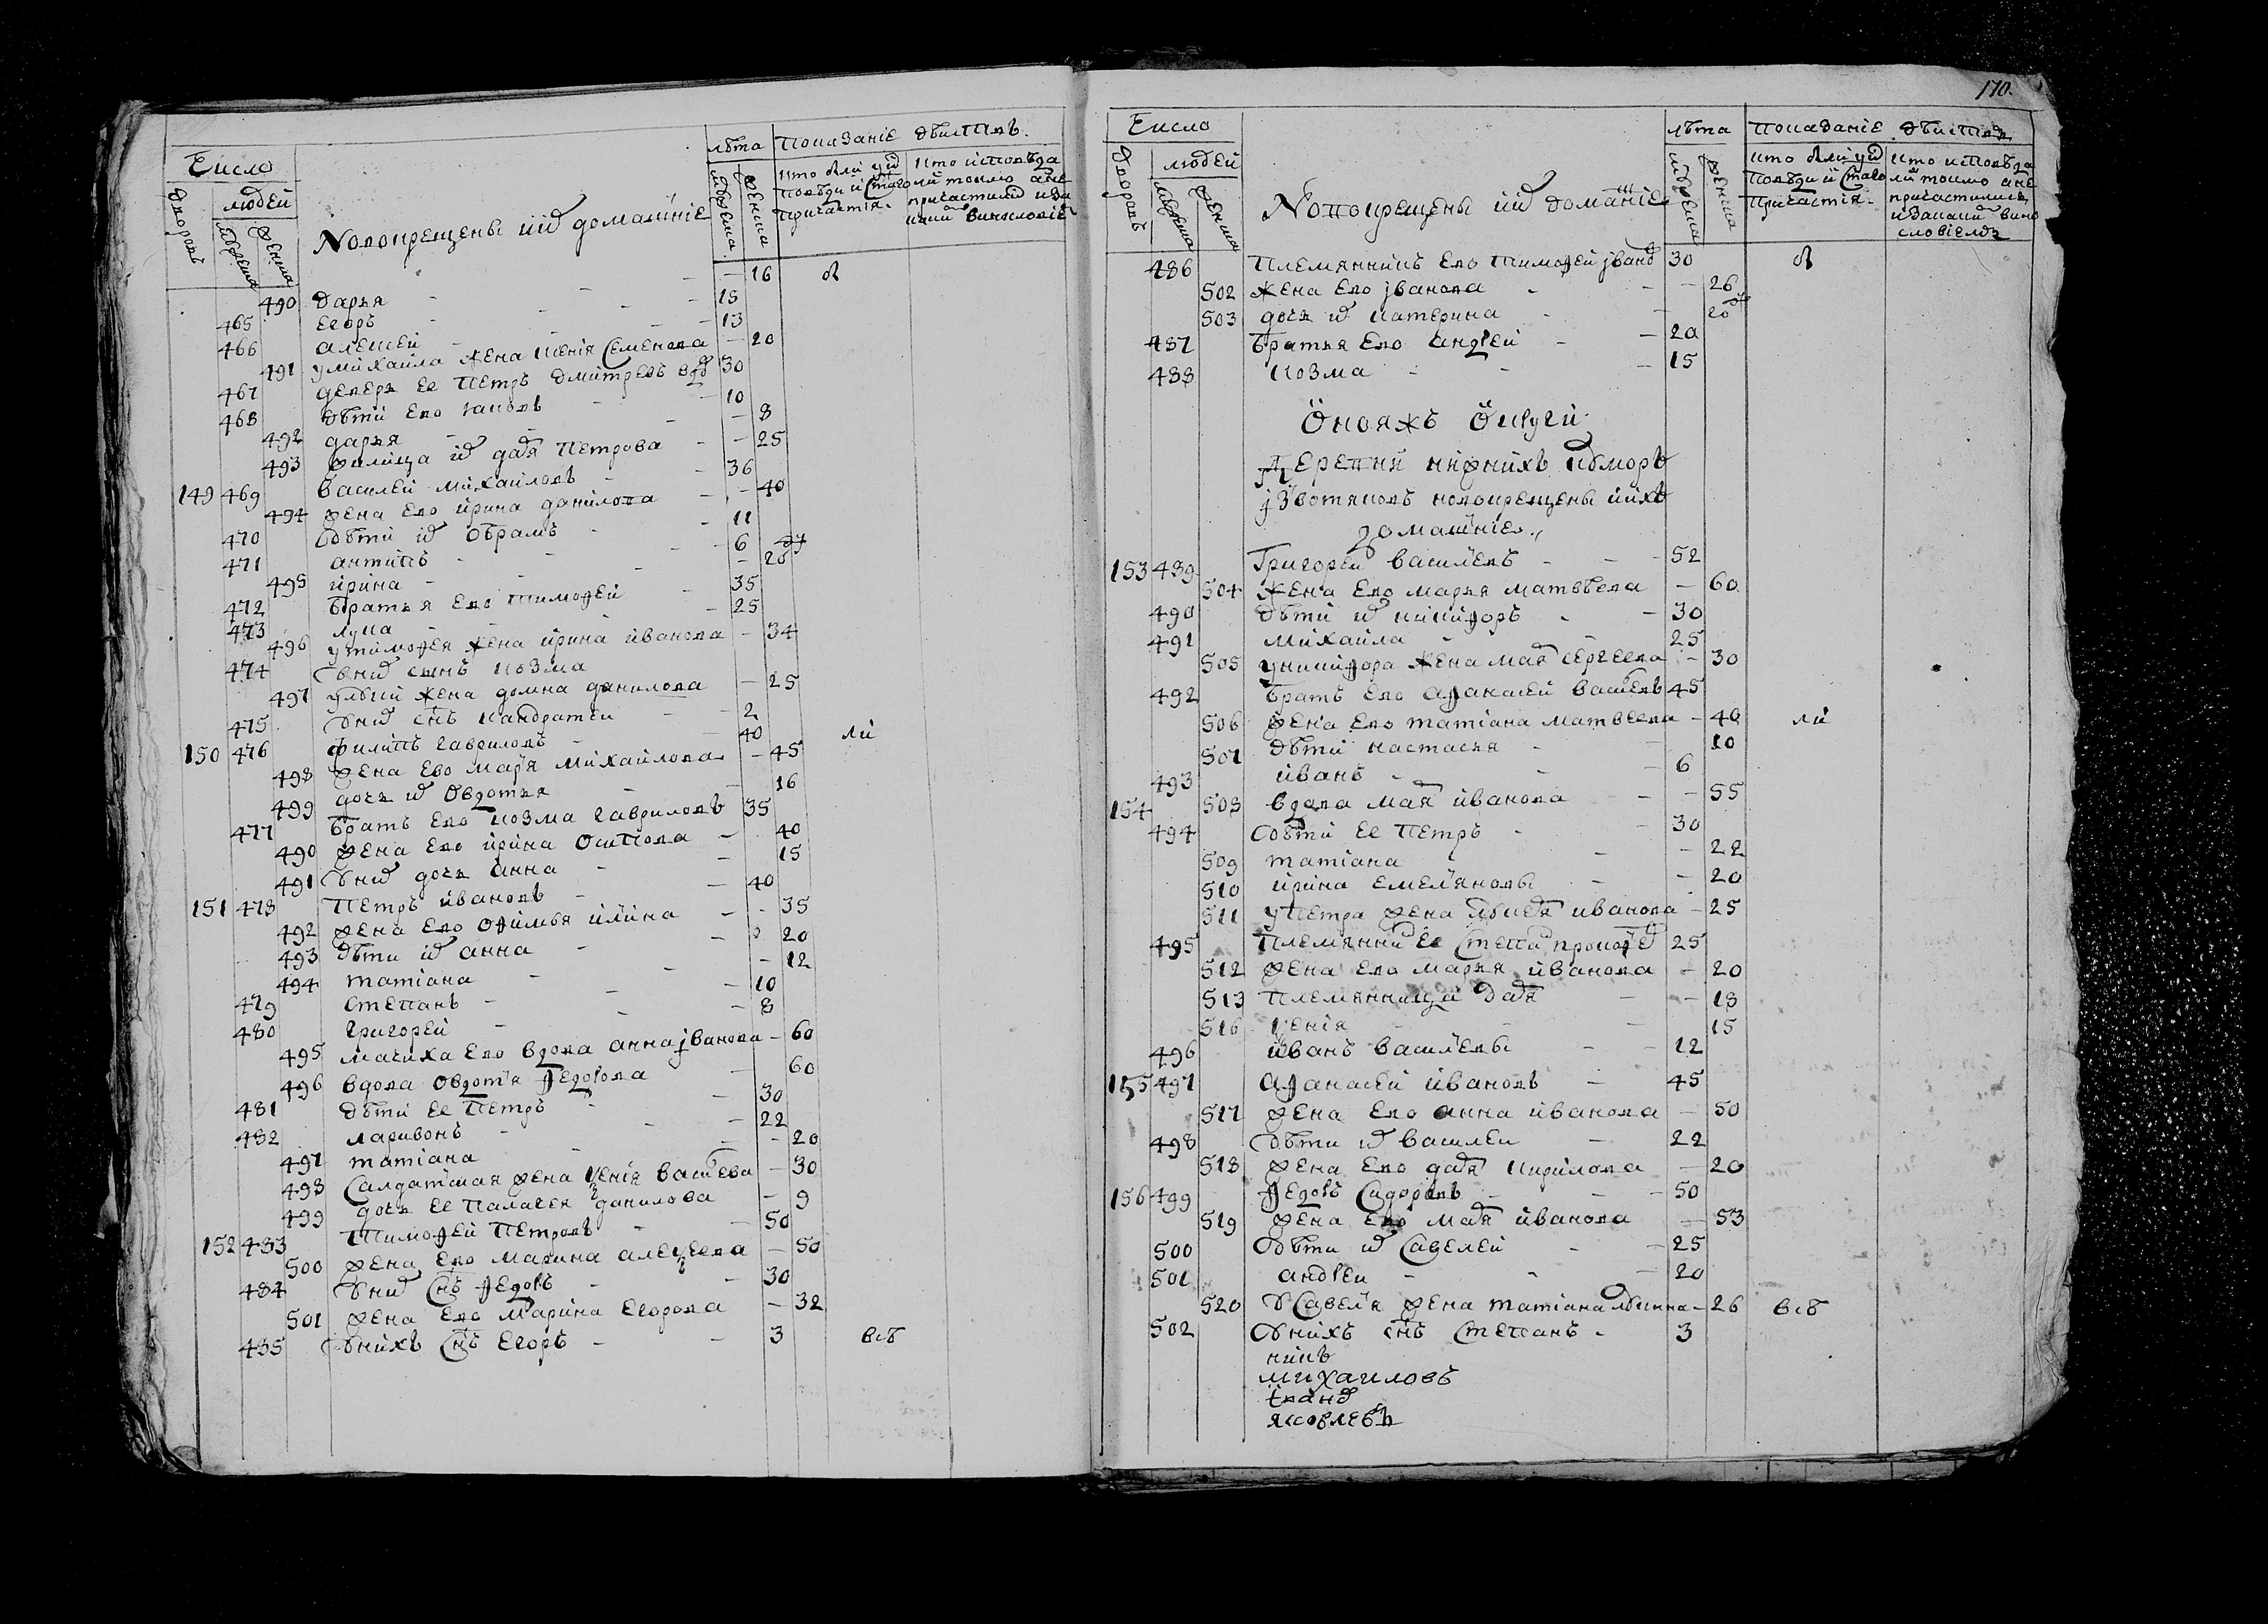 Число
людей
дворовъ
мужеска
женска
Новокрещены ихъ домашнїе
лѣта
мужеска
женска
показанїе дѣйствъ
кто были у ис
поведи и Стаго
причастия
кто исповѣда
ли токмо а не
причастили и за
каким винословїе
490 дарья - 16 б
465 егоръ - 15
466 алексей - 13
491 у михаила жена ксенїя Семенова - 20
467 деверь ее петръ дмитревъ вдо 30
468 дѣти ево яковъ - 10
492 дарья - 8
493 филица их дадя петрова - 25
149 469 василей михаиловъ - 36
494 жена ево ирина данилова - 40
470 дѣти их обрамъ - 11
471 антипъ - 6
495 ирина - 20
472 братья ево тимофей - 35
473 лука - 25
496 у тимофея жена ирина иванова - 34
474 у них сынъ козма
497 у луки жена домна данилова - 25
475 у них снъ кандратей - 2
150 476 филипъ гавриловъ - 40 ли
498 жена ево маря михаилова - 45
499 дочь их овдотья - 16
477 братъ ево козма гавриловъ 35
490 жена ево ирина осипова - 40
491 у них дочь анна - 15
151 478 петръ ивановъ - 40
492 жена ево офимья илїина - 35
493 дѣти их анна - 20
494 татїана - 12
479 степанъ - 10
480 григорей - 8
495 мачиха ево вдова анна иванова - 60
496 вдова овдотя федорова - 60
481 дѣти ее петръ - 30
482 ларивонъ - 22
497 татїана - 20
498 Салдатская жена ксенїя василева - 30
499 дочь ее палагея данилова - 9
152 483 тимофей петровъ - 50
500 жена ево марина алексеева - 50
484 у них снъ федоръ - 30
501 жена ево марина егорова - 32
485 у нихъ снъ егоръ - 3 всѣ
170.
Число
людей
дворовъ
мужеска
женска
Новокрещены их домашнїе
лѣта
мужеска
женска
показанїе дѣйствъ
кто были у ис
поведи и Стаго
причастия
кто исповѣда
ли токмо а не
причастились
и за каким вино
словїемъ
486 племянникъ ево тимофей иванов 30 б
502 жена ево иванова - 26
503 дочь их катерина - 20
487 братья ево андрей - 20
488 козма - 15
Онояжъ Округи
Деревни нижнихъ
из вотяковъ новокрещены ихъ
домашнїе
153 489 Григорей василевъ - 52
504 жена ево марья матвѣева - 60
490 дѣти их никифоръ - 30
491 михаила - 25
505 у никифора жена мая сергеева - 30
492 братъ ево афанасей васильевъ 45
506 жена ево татїана матвеева - 40 ли
507 дѣти настасья - 10
493 иванъ - 6
154 508 вдова мая иванова - 55
494 дѣти ее петръ - 30
509 татїана - 22
510 ирина емелянова - 20
511 у петра жена иванова - 25
495 племянник ее степан прокофе 25
512 жена ево марья иванова - 20
513 племянницы дадя - 18
516 ксенїя - 15
496 иванъ василевы - 12
155 497 афанасей ивановъ - 45
517 жена ево анна иванова - 50
498 дѣти их василеи - 22
518 жена ево дадя кирилова - 20
156 499 федоръ Сидоровъ - 50
519 жена ево мадя иванова - 53
500 дѣти их Савелей - 25
501 андреи - 20
520 у Савеля жена татїана лукина - 26 всѣ
502 у нихъ снъ Степанъ - 3
никъ
михаиловъ
яковлевъ